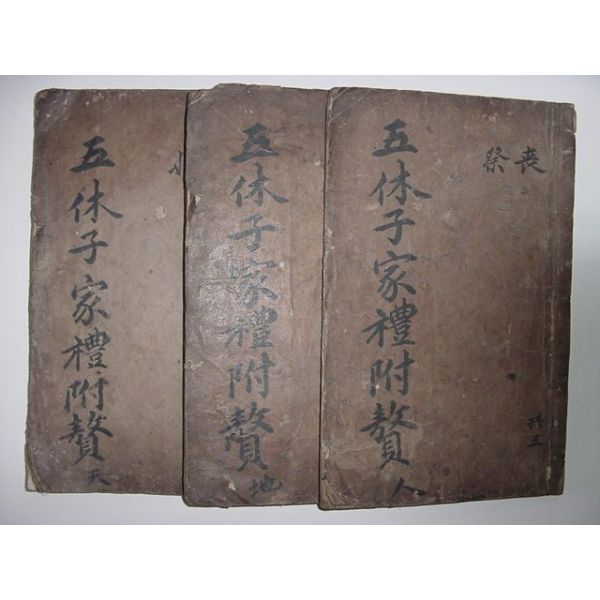 五休子家禮附贅 天
五休子家禮附贅 地
喪祭
五休子家禮附贅 人
共三